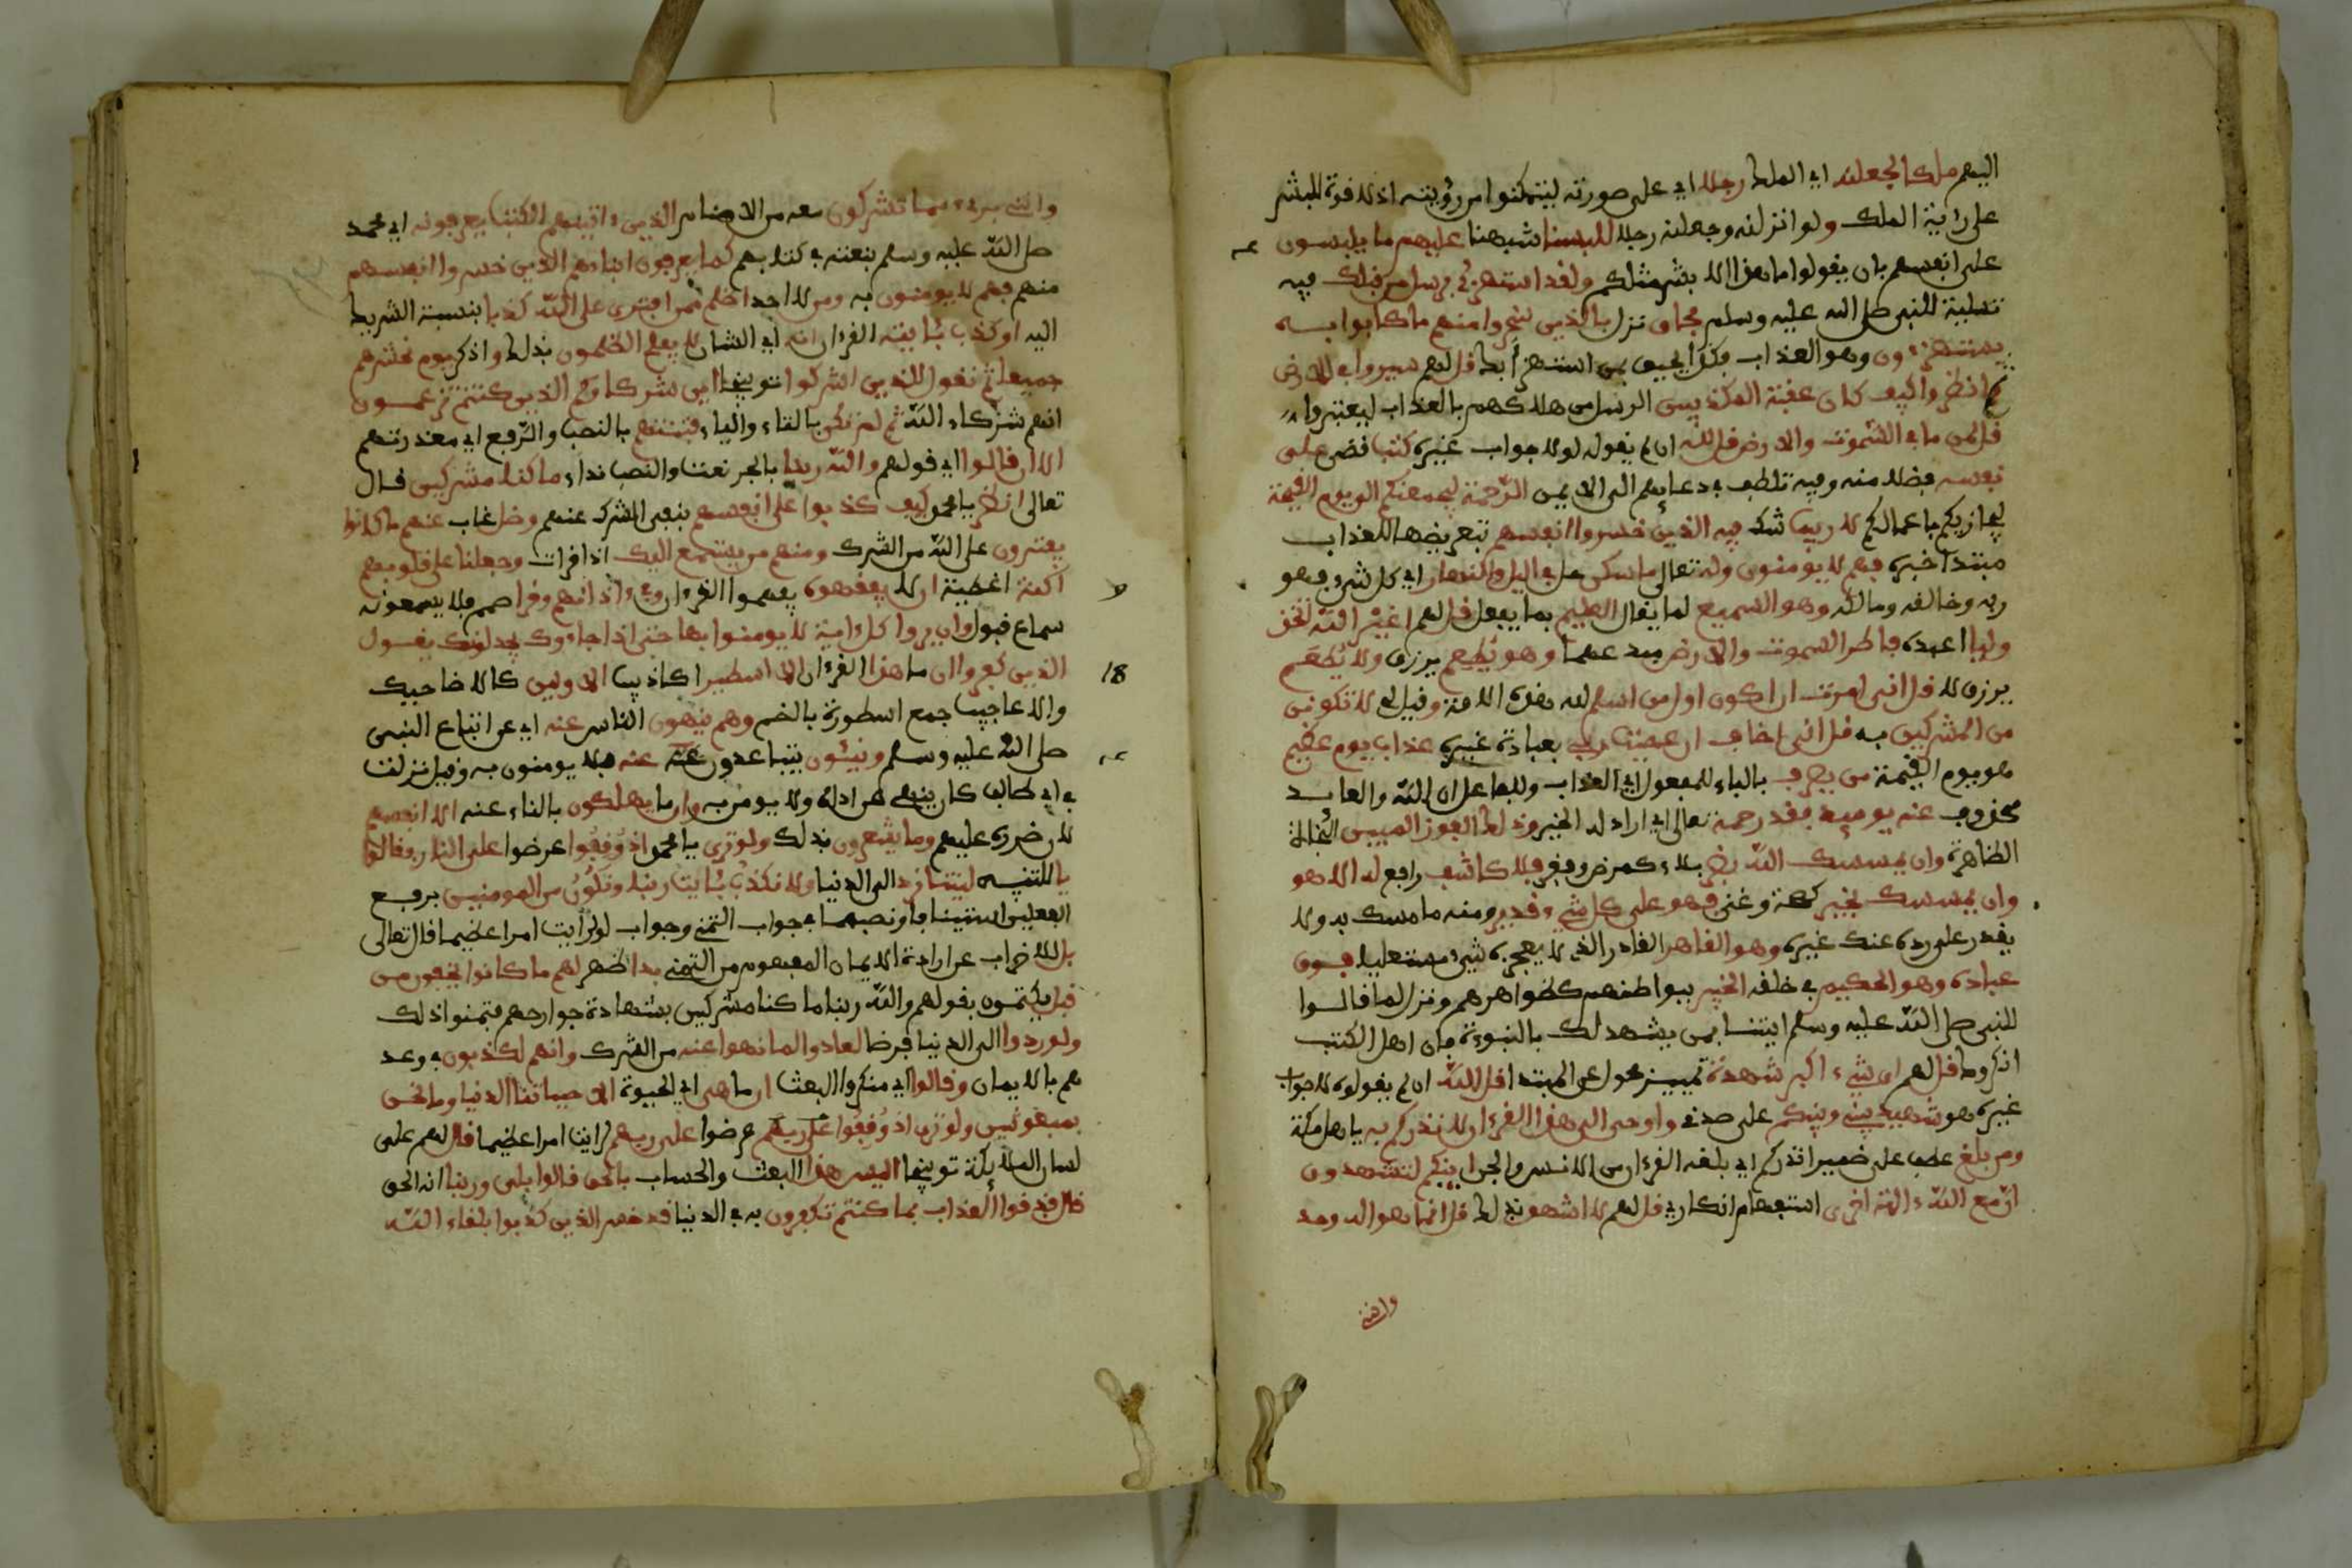 اليهم ملكا لجعلنه اي الملك رجلا اي على صورته ليتمكنوا من رؤيته اذ لا قوة للبشر
على رؤية الملك ولو انزلنه وجعلنه رجلا للبسنا شبهنا عليهم ما يلبسون
على انفسهم بان يقولوا ما هذا الا بشر مثلكم ولقد استهزئ برسل من قبلك فيه
تسلية للنبي صلى الله عليه وسلم فحاق نزل بالذين سخروا منهم ما كانوا به
يستهزءون وهو العذاب فكذا يحيق بمن استهزأ بك قل لهم سيروا في الارض
ثم انظروا كيف كان عقبة المكذبين الرسل من هلاكهم بالعذاب ليعتبروا
قل لمن ما في السموت والارض قل لله ان لم يقولوه لا جواب غيره كتب قضى على
نفسه فضلا منه وفيه تلطف في دعايهم الى الايمن الرحمة ليجمعنكم الى يوم القيمة
ليجازيكم باعمالكم لا ريب شك فيه الذين خسروا انفسهم بتعريضها للعذاب
مبتدا خبره فهم لا يومنون وله تعالى ما سكن حل في اليل والنهار اي كل شيء فهو
ربه وخالقه ومالكه وهو السميع لما يقال العليم بما يفعل قل لهم اغير الله اتخذ
وليا اعبده فاطر السموت والارض مبدعهما وهو يطعم يرزق ولا يطعم
يرزق لا قل اني امرت ان اكون اول من اسلم لله من هذه الامة وقيل لي لا تكونن
من المشركين به قل اني اخاف ان عصيت ربي بعبادة غيره عذاب يوم عظيم
هو يوم القيمة من يصرف بالبناء للمفعول اي العذاب وللفاعل اي الله والعايد
محذوف عنه يوميذ فقد رحمه تعالى اي اراد له الخير وذلك الفوز المبين النجاة
الظاهرة وان يمسسك الله بضر بلاء كمرض وفقر فلا كاشف رافع له الا هو
وان يمسسك بخير كصحة وغنى فهو على كل شيء قدير ومنه ما مسك به ولا
يقدر على رده عنك غيره وهو القاهر القادر الذي لا يعجزه شيء مستعليا فوق
عباده وهو الحكيم في خلقه الخبير ببواطنهم كظواهرهم ونزل لما قالوا
للنبي صلى الله عليه وسلم ايتنا بمن يشهد لك بالنبوءة فان اهل الكتب
انكروك قل لهم اي شيء اكبر شهدة تمييز محول عن المبتدا قل الله ان لم يقولوه لا جواب
غيره هو شهيد بيني وبينكم على صدقي واوحي الي هذا القرءان لانذركم به يا اهل مكة
ومن بلغ عطف على ضمير انذركم اي بلغه القرءان من الانس والجن اينكم لتشهدون
ان مع الله ءالهة اخرى استفهام انكاري قل لهم لا اشهد بذلك قل انما هو اله وحد
وانني
وانني بريء مما تشركون معه من الاصنام الذين ءاتينهم الكتب يعرفونه اي محمد
صلى الله عليه وسلم بنعته في كتابهم كما يعرفون ابناءهم الذين خسروا انفسهم
منهم فهم لا يومنون به ومن لا احد اظلم ممن افترى على الله كذبا بنسبة الشريك
اليه او كذب بئايته القرءان انه اي الشان لا يفلح الظلمون بذلك واذكر يوم نحشرهم
جميعا ثم نقول للذين اشركوا توبيخا اين شركاؤكم الذين كنتم تزعمون
انهم شركاء الله ثم لم تكن بالتاء والياء فتنتهم بالنصب والرفع اي معذرتهم
الا ان قالوا اي قولهم والله ربنا بالجر نعت والنصب نداء ما كنا مشركين قال
تعالى انظر يا محمد كيف كذبوا على انفسهم بنفي الشرك عنهم وضل غاب عنهم ما كانوا
يفترون على الله من الشرك ومنهم من يستمع اليك اذا قرات وجعلنا على قلوبهم
اكنة اغطية ان لا يفقهوه يفهموا القرءان وفي ءاذانهم وقرا صمم فلا يسمعونه
سماع قبول وان يروا كل ءاية لا يومنوا بها حتى اذا جاءوك يجدلونك يقول
18
الذين كفروا ان ما هذا القرءان الا اسطير اكاذيب الاولين كالاضاحيك
والاعاجيب جمع اسطورة بالضم وهم ينهون الناس عنه اي عن اتباع النبي
صلى الله عليه وسلم وينئون يتباعدون عنه عنه فلا يومنون به وقيل نزلت
في ابي طالب كان ينهى عن اذاه ولا يومن به وان ما يهلكون بالناء عنه الا انفسهم
لان ضرره عليهم وما يشعرون بذلك ولو ترى يا محمد اذ وقفوا عرضوا على النار فقالوا
يا للتنبيه ليتنا نرد الى الدنيا ولا نكذب بئايت ربنا ونكون من المومنين برفع
الفعلين استينافا ونصبهما في جواب التمني وجواب لو لرايت امرا عظيما قال تعالى
بل للاضراب عن ارادة الايمان المفهوم من التمني بدا ظهر لهم ما كانوا يخفون من
قبل يكتمون بقولهم والله ربنا ما كنا مشركين بشهادة جوارحهم فتمنوا ذلك
ولو ردوا الى الدنيا فرضا لعادوا لما نهوا عنه من الشرك وانهم لكذبون في وعد
هم بالايمان وقالوا اي منكروا البعث ان ما هي اي الحيوة الا حياتنا الدنيا وما نحن
بمبعوثين ولو ترى اذ وقفوا على ربهم عرضوا على ربهم لرايت امرا عظيما قال لهم على
لسان الملايكة توبيخا اليس هذا البعث والحساب بالحق قالوا بلى وربنا انه الحق
قال فذوقوا العذاب بما كنتم تكفرون به في الدنيا قد خسر الذين كذبوا بلقاء الله